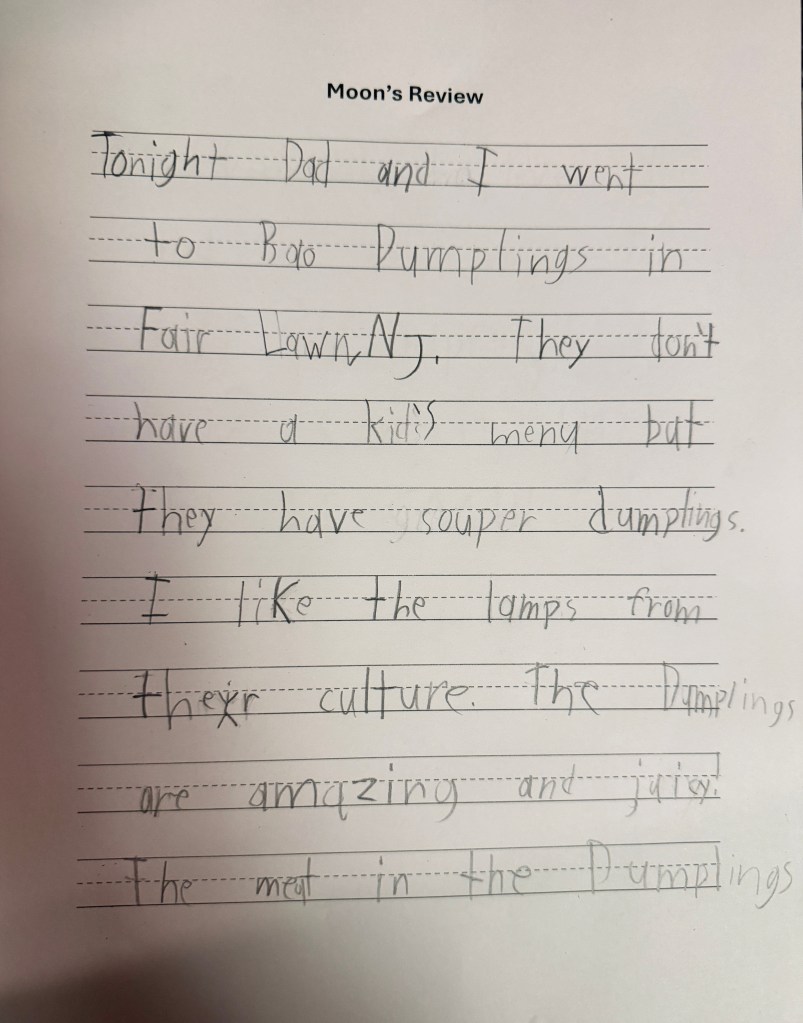 Moon's Review
Tonight Dad and I went
to Bao Dumplings in
Fair Lawn NJ. They don't
have a kid's menu but
they have souper dumplings.
I like the lamps from
their culture. The Dumplings
are amazing and juicy!
The meat in the Dumplings